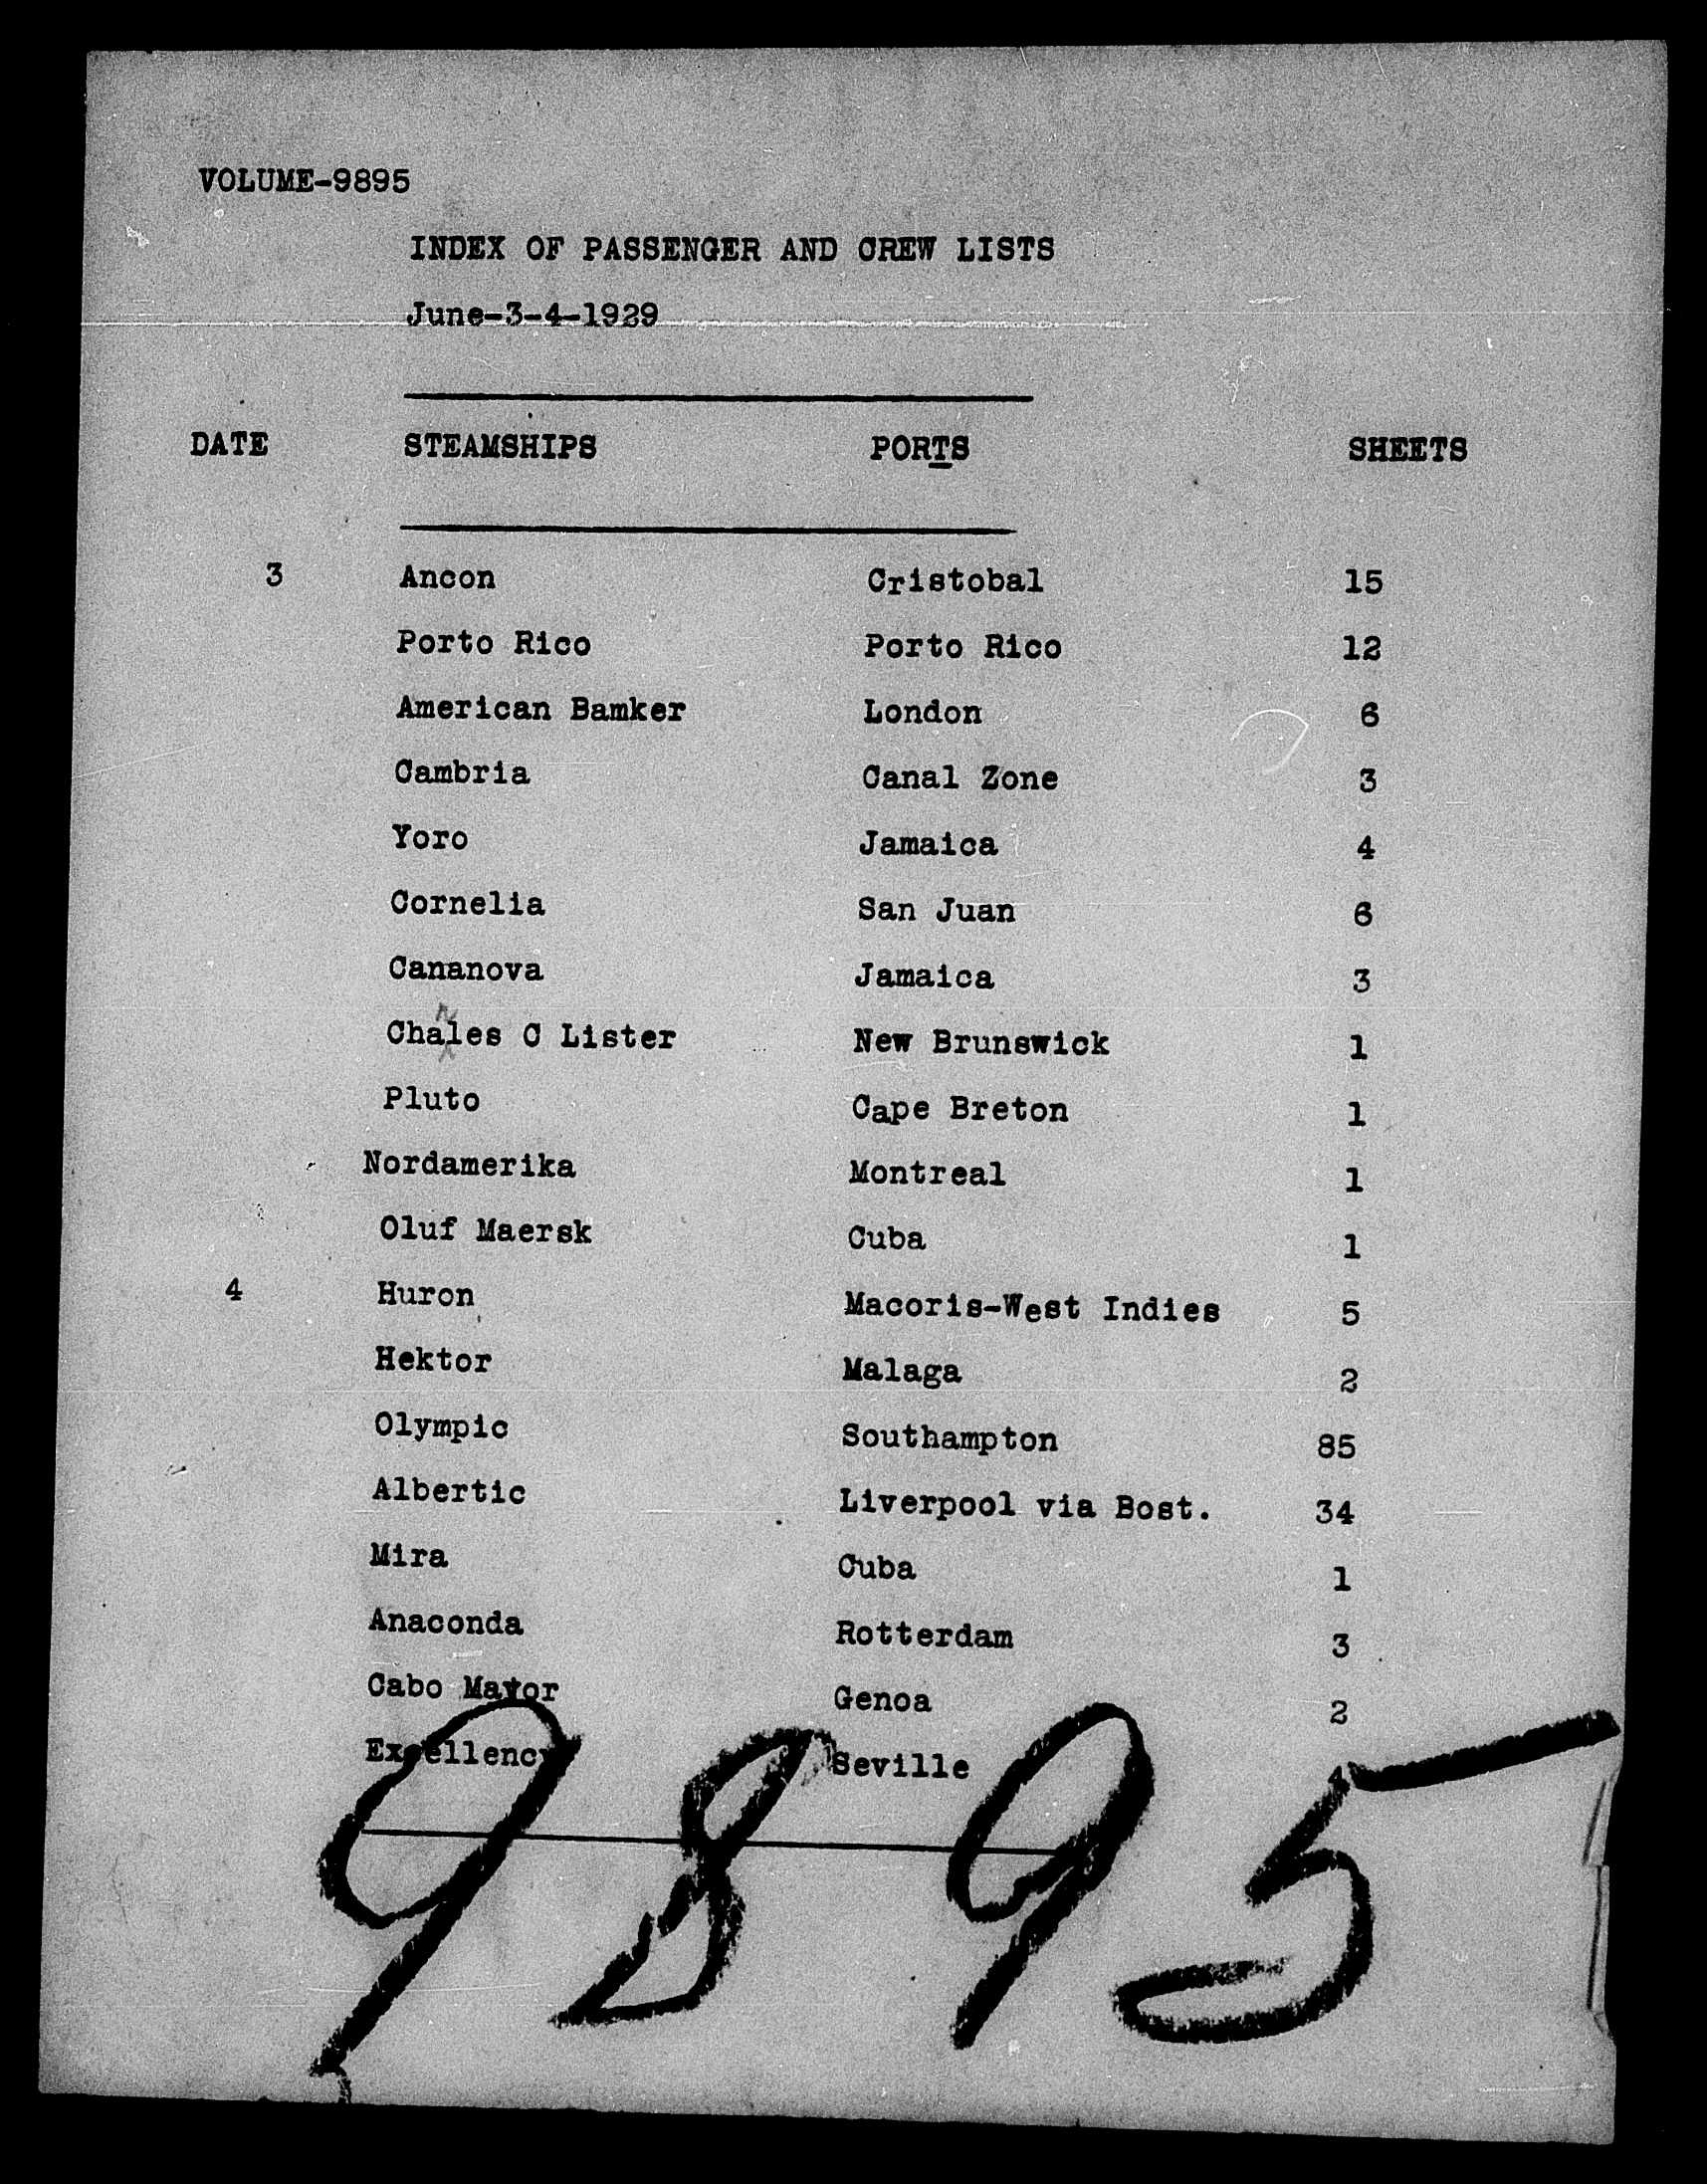 VOLUME-9895
INDEX OF PASSENGER AND CREW LISTS
June-3-4-1929
DATE STEAMSHIPS PORTS SHEETS
3 Ancon Cristobal 15
Porto Rico Porto Rico 12
American Bamker London 6
Cambria Canal Zone 3
Yoro Jamaica 4
Cornelia San Juan 6
Cananova Jamaica 3
Charles C Lister New Brunswick 1
Pluto Cape Breton 1
Nordamerika Montreal 1
Oluf Maersk Cuba 1
4 Huron Macoris-West Indies 5
Hektor Malaga 2
Olympic Southampton 85
Albertic Liverpool via Bost. 34
Mira Cuba 1
Anaconda Rotterdam 3
Cabo Mayor Genoa 2
Excellency Seville
9895